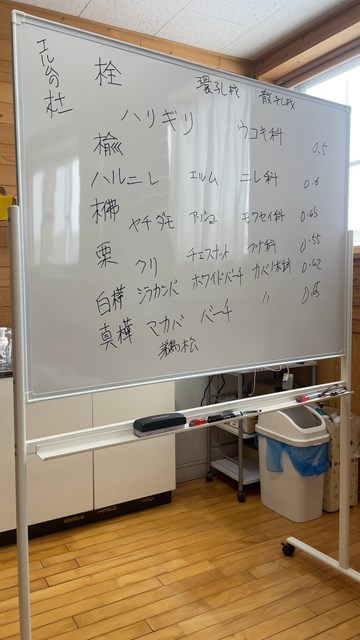 エルムの杜
栓 環孔材 散孔材
ハリギリ ウコギ科 0.5
楡
ハルニレ エルム ニレ科 0.6
ヤチダモ アッシュ モクセイ科 0.65
栗 クリ チェスナット ブナ科 0.55
白樺 シラカンバ ホワイトバーチ カバノキ科 0.62
真樺 マカバ バーチ 〃 0.65